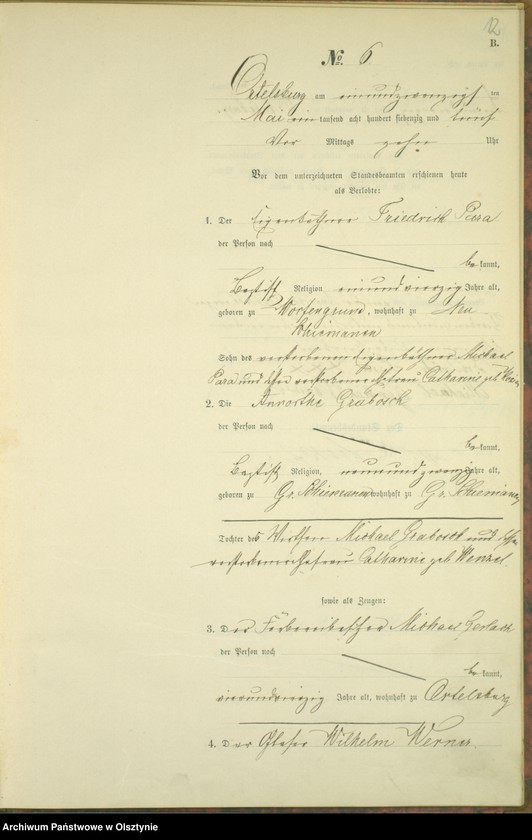 12
B.
№ 6
Ortelsburg am einundzwanzigsten
Mai ein tausend acht hundert siebenzig und fünf
Vor Mittags zehn Uhr
Vor dem unterzeichneten Standesbeamten erschienen heute
als Verlobte:
1. Der Eigenkäthner Friedrich Para
der Person nach
be kannt,
Baptist Religion einundvierzig Jahre alt,
geboren zu wohnhaft zu Neu
Schiemanen
Sohn des verstorbenen Eigenkäthner Michael
Para und dessen verstorbener Ehefrau Catharine geb
2. Die Annorthe Grabosch
der Person nach
be kannt,
Baptist Religion, neunundzwanzig Jahre alt,
geboren zu Gr. Schiemanen wohnhaft zu Gr. Schiemanen
Tochter des Michael Grabosch und dessen
verstorbener Ehefrau Catharine geb Wenzel.
sowie als Zeugen:
3. Der Färbereibesitzer Michael Gerlach
der Person nach
be kannt,
vierundvierzig Jahre alt, wohnhaft zu Ortelsburg
4. Der Glaser Wilhelm Werner.
Archiwum Państwowe w Olsztynie